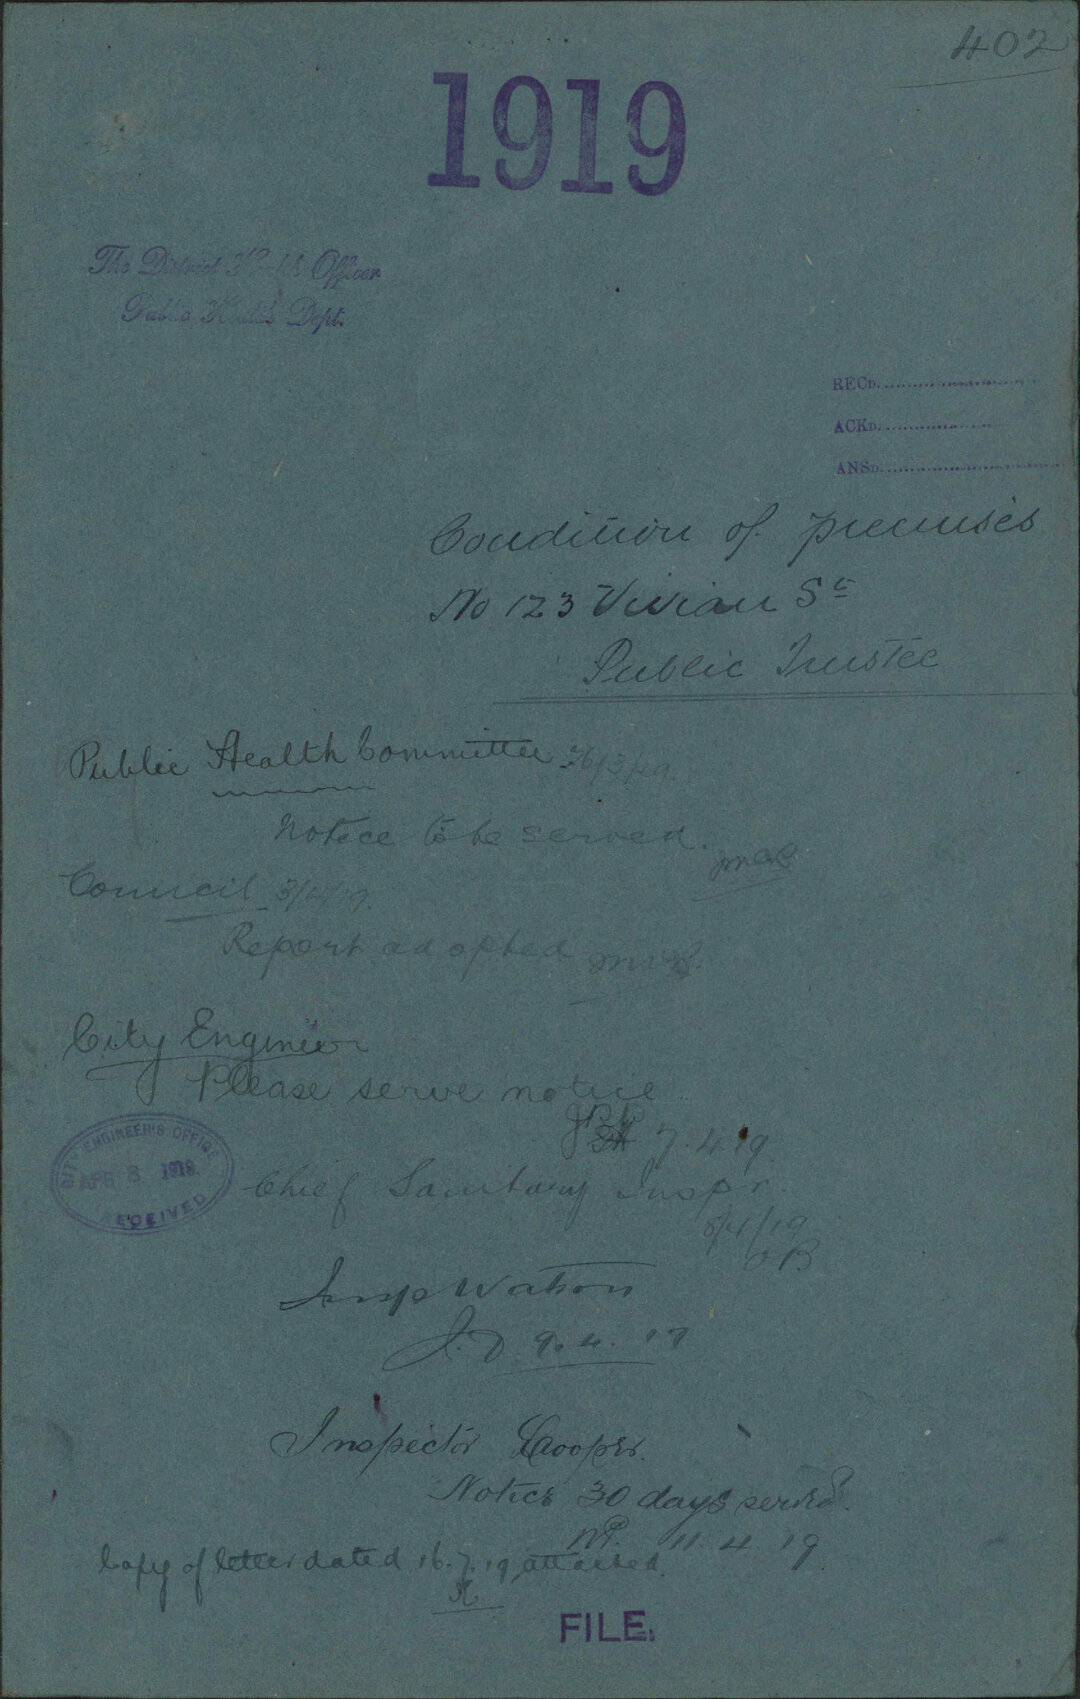 402
1919
The District Health Officer
Public Health Dept.
RECD.
ACKD.
ANSD.
Condition of premises
No 123 Vivian St
Public Trustee
Public Health Committee 26/3/19.
Notice to be served.
Council 3/4/19.
Report adopted
City Engineer
Please serve notice
7.4.19
CITY ENGINEER'S OFFICE
APR 8 1919
RECEIVED
Chief Sanitary Inspr.
8/4/19
Insp Watson
J.D 9.4.19
Inspector Cooper.
Notice 30 days served.
11.4.19
Copy of letter dated 16.7.19 attached.
FILE.